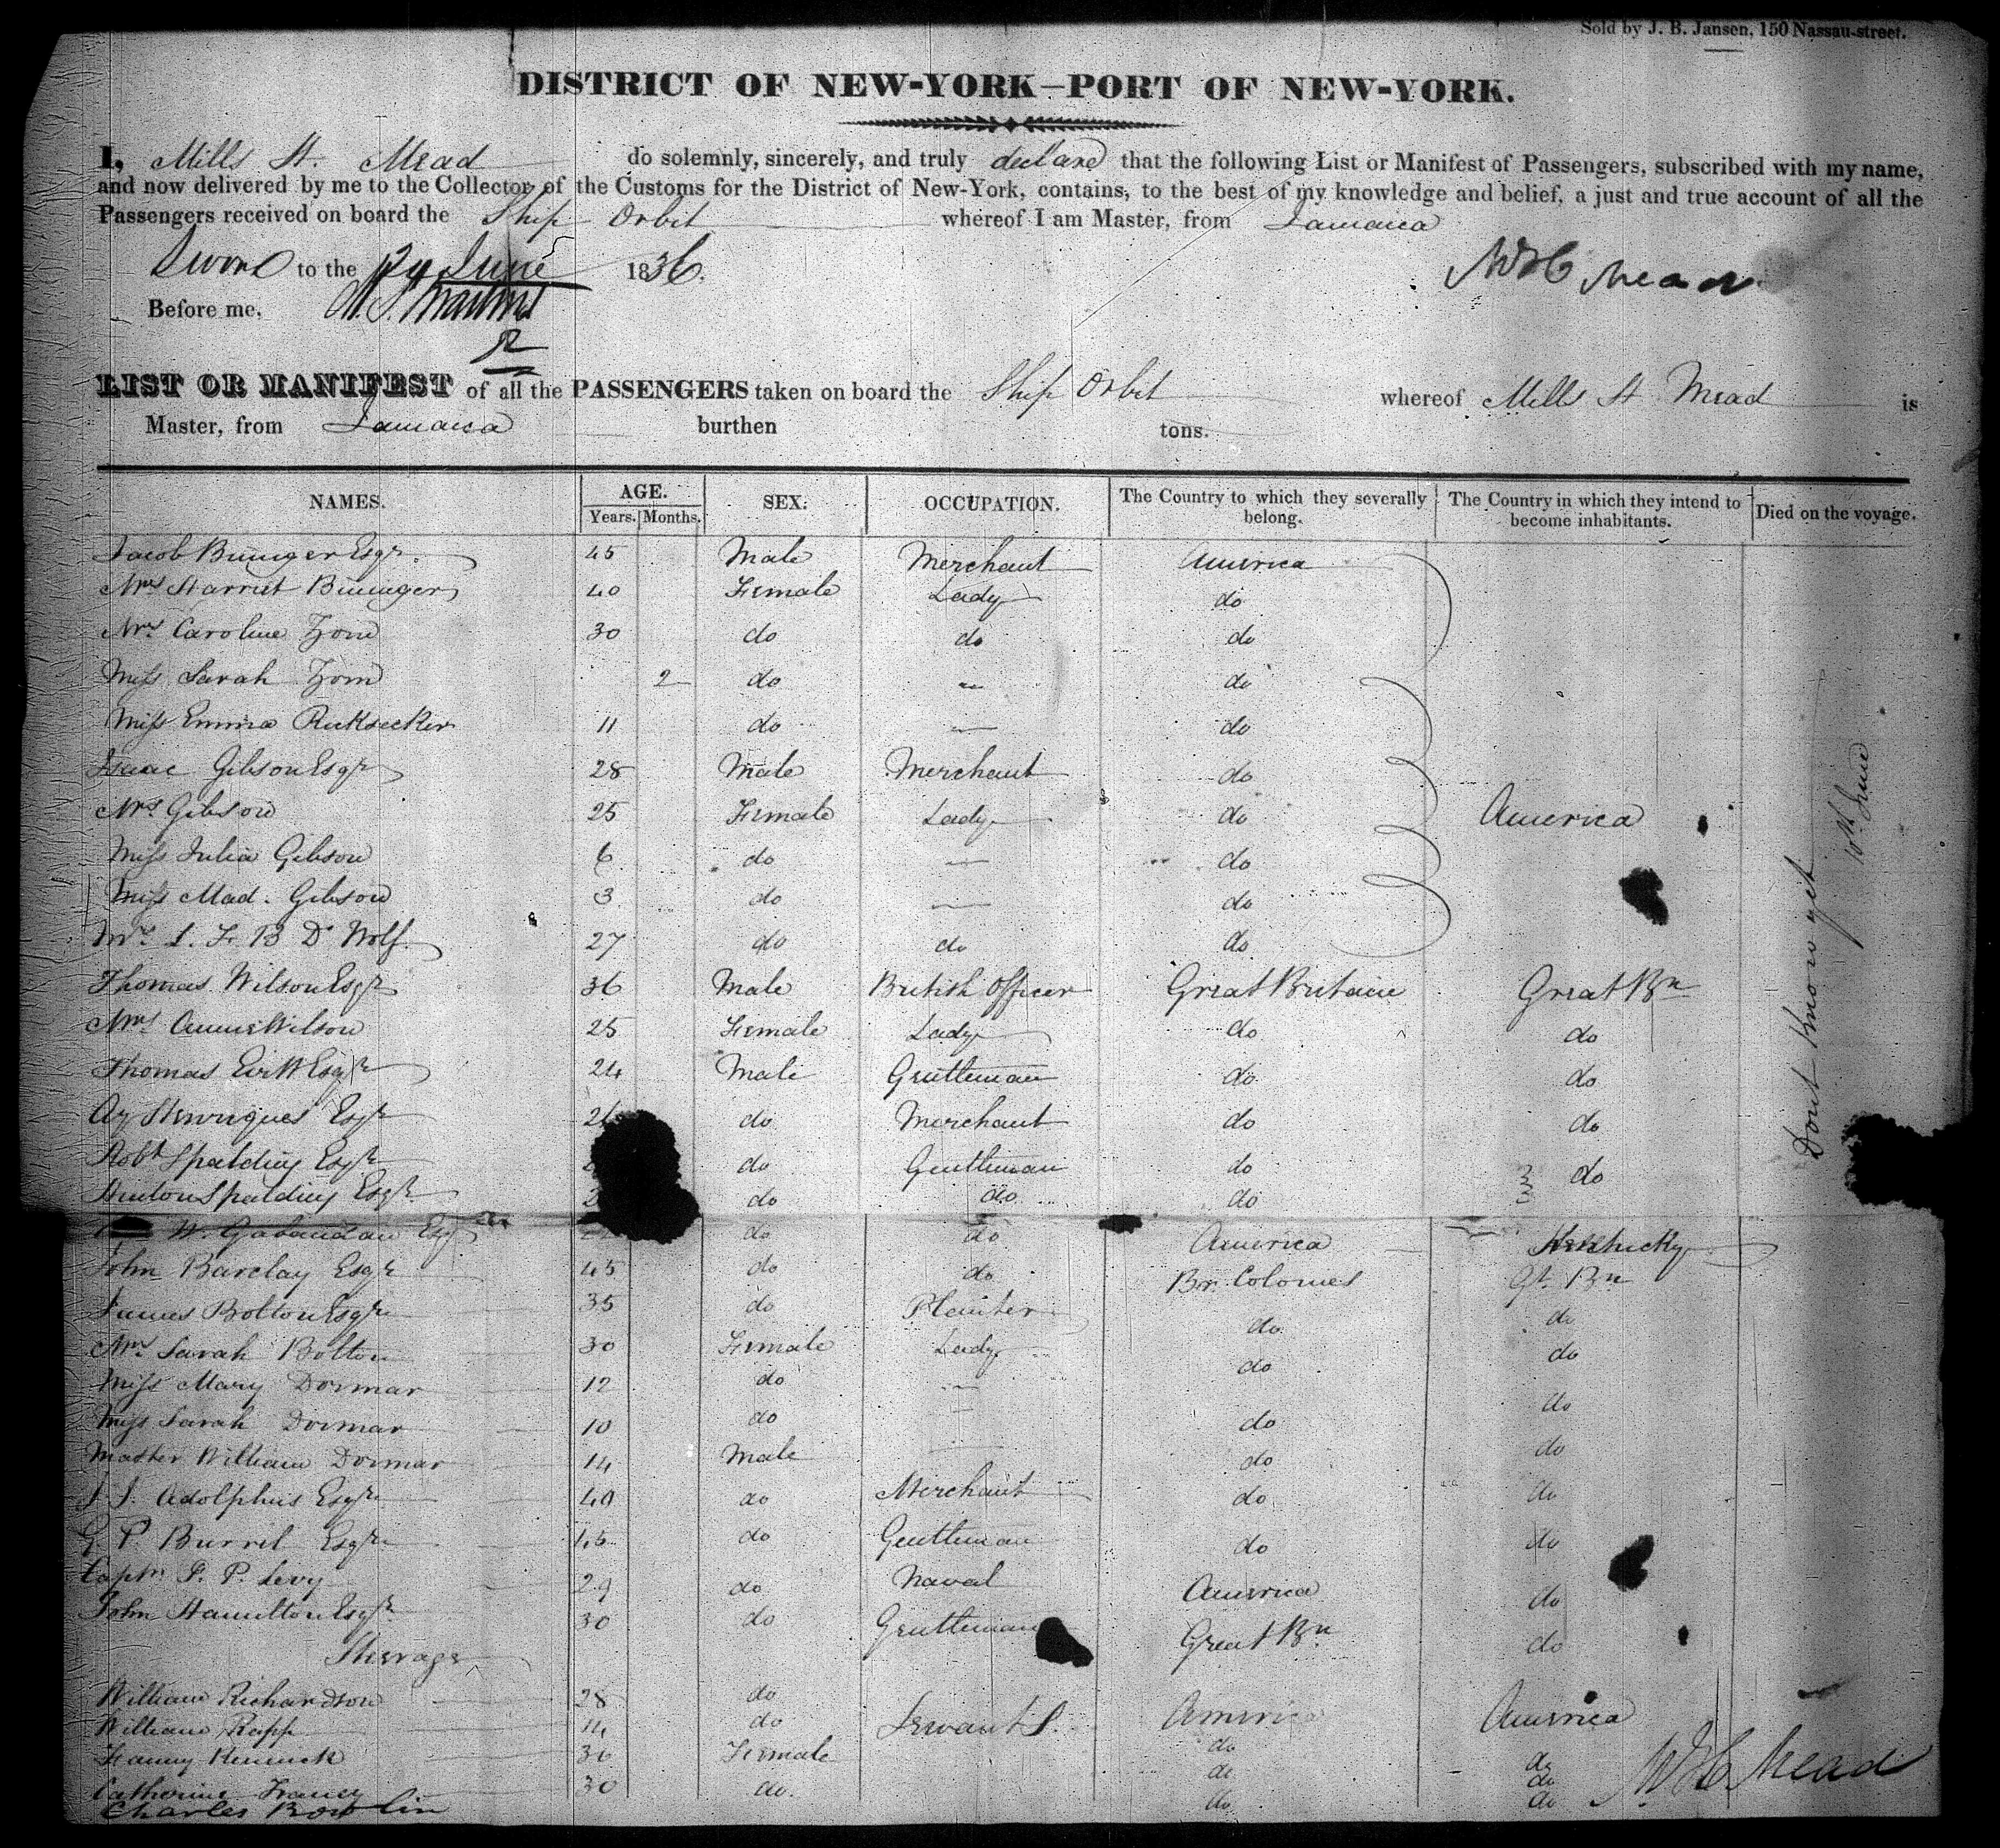 Sold by J. B. Jansen, 150 Nassau-street.
DISTRICT OF NEW-YORK—PORT OF NEW-YORK.
I, Mills H. Mead do solemnly, sincerely, and truly declare that the following List or Manifest of Passengers, subscribed with my name,
and now delivered by me to the Collector of the Customs for the District of New-York, contains, to the best of my knowledge and belief, a just and true account of all the
Passengers received on board the Ship Orbit whereof I am Master, from Jamaica
Sworn to the June 1836.
Mead
Before me,
LIST OR MANIFEST of all the PASSENGERS taken on board the Ship Orbit whereof Mills H Mead is
Master, from Jamaica burthen tons.
NAMES. AGE. Years. Months. SEX. OCCUPATION. The Country to which they severally belong. The Country in which they intend to become inhabitants. Died on the voyage.
Jacob Bininger Esqr. 45 Male Merchant America
Mrs Harriet Bininger 40 Female Lady do
Mrs Caroline Zorn 30 do do do
Miss Sarah Zorn 2 do - do
Miss Emma Ricksecker 11 do - do
Isaac Gibson Esqr 28 Male Merchant do
Mrs Gibson 25 Female Lady do America
Miss Julia Gibson 6 do - do
Miss Mad. Gibson 3 do - do
L. F. B D' Wolf 27 do do do
Thomas Wilson Esqr 36 Male British Officer Great Britain Great Bn
Mrs Annie Wilson 25 Female Lady do do
Thomas Esqr 24 Male Gentleman do do
Henriques Esqr do Merchant do do
Robt Spalding Esqr do Gentleman do do
Hinton Spalding Esqr do do do
W. Gabaudan Esqr do do America Kentucky
John Barclay Esqr 45 do do Br. Colonies Gt. Bn
James Bolton Esqr 35 do Planter do do
Mrs Sarah Bolton 30 Female Lady do do
Miss Mary Dormar 12 do - do
Miss Sarah Dormar 10 do - do do
Master William Dormar 14 Male - do do
J. J. Adolphus Esqr 40 do Merchant do do
G. P. Burril Esqr 45 do Gentleman do do
Captn P. Levy 29 do Naval America do
John Hamilton Esqr 30 do Gentleman Great Bn do
Steerage
William Richardson 28 do America America
William Rapp 14 do Servants. do do
Fanny 36 Female do do
Catherine 30 do. do do
Charles Bowlin
Dont Know yet
10th June
Mead